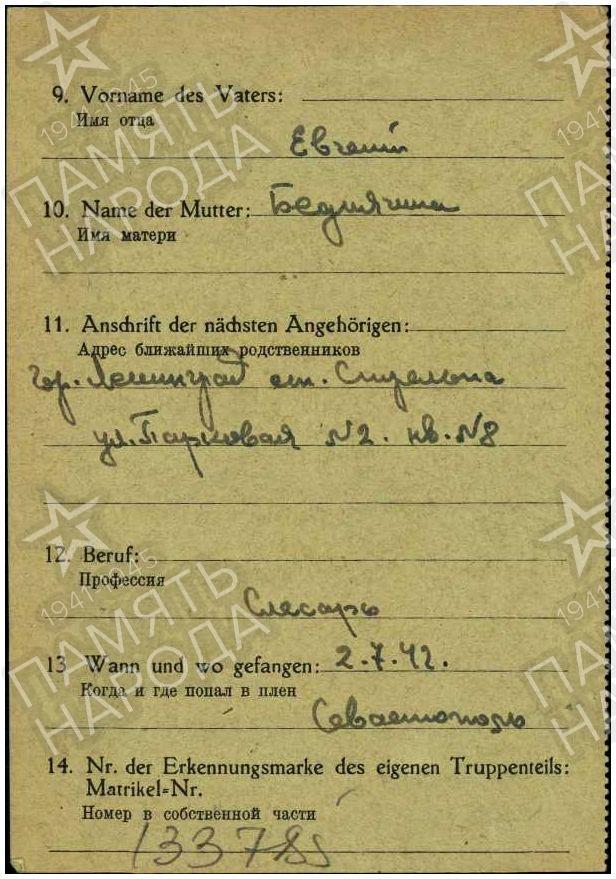 9. Vorname des Vaters:
Имя отца
Евгений
10. Name der Mutter:
Имя матери
11. Anschrift der nächsten Angehörigen:
Адрес ближайших родственников
гор. Ленинград ст. Стрельна
ул. Парковая №2. кв. №8
12. Beruf:
Профессия
Слесарь
13 Wann und wo gefangen: 2.7.42.
Когда и где попал в плен
Севастополь
14. Nr. der Erkennungsmarke des eigenen Truppenteils:
Matrikel=Nr.
Номер в собственной части
ПАМЯТЬ
НАРОДА
1941 1945